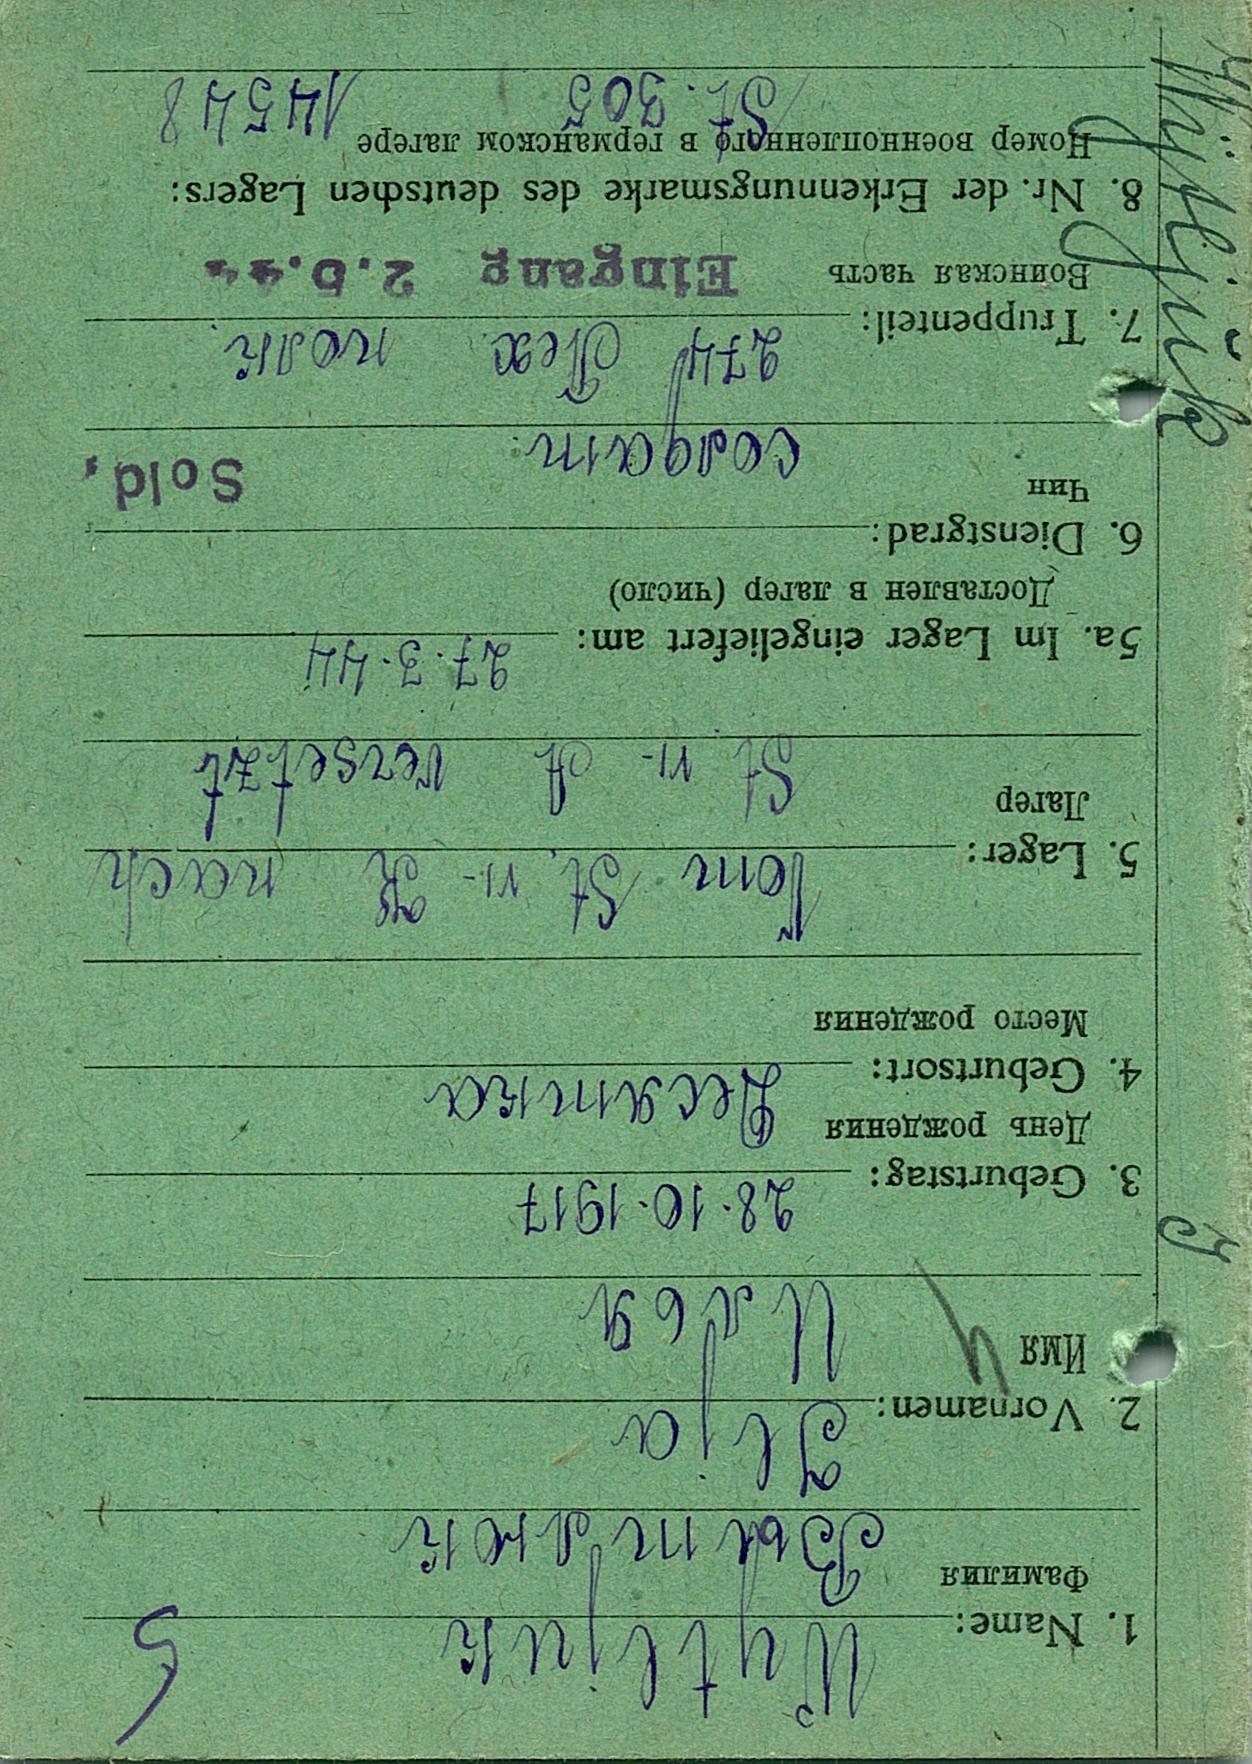 1. Name: Wytljuk
Фамилия Вытлюк
2. Vornamen: Ilja
Имя Илья
3. Geburtstag: 28.10.1917
День рождения
4. Geburtsort: Десятка
Место рождения
5. Lager: Vom St. VI-K nach
Лагер St VI-A versetzt
5a. Im Lager eingeliefert am: 27.3.44
Доставлен в лагер (число)
6. Dienstgrad:
Чин солдат Sold,
7. Truppenteil: 274 Пех. полк.
Воинская часть Eingang 2.5.44
8. Nr. der Erkennungsmarke des deutschen Lagers:
Номер военнопленного в германском лагере
St. 305 14548
Wytljuk